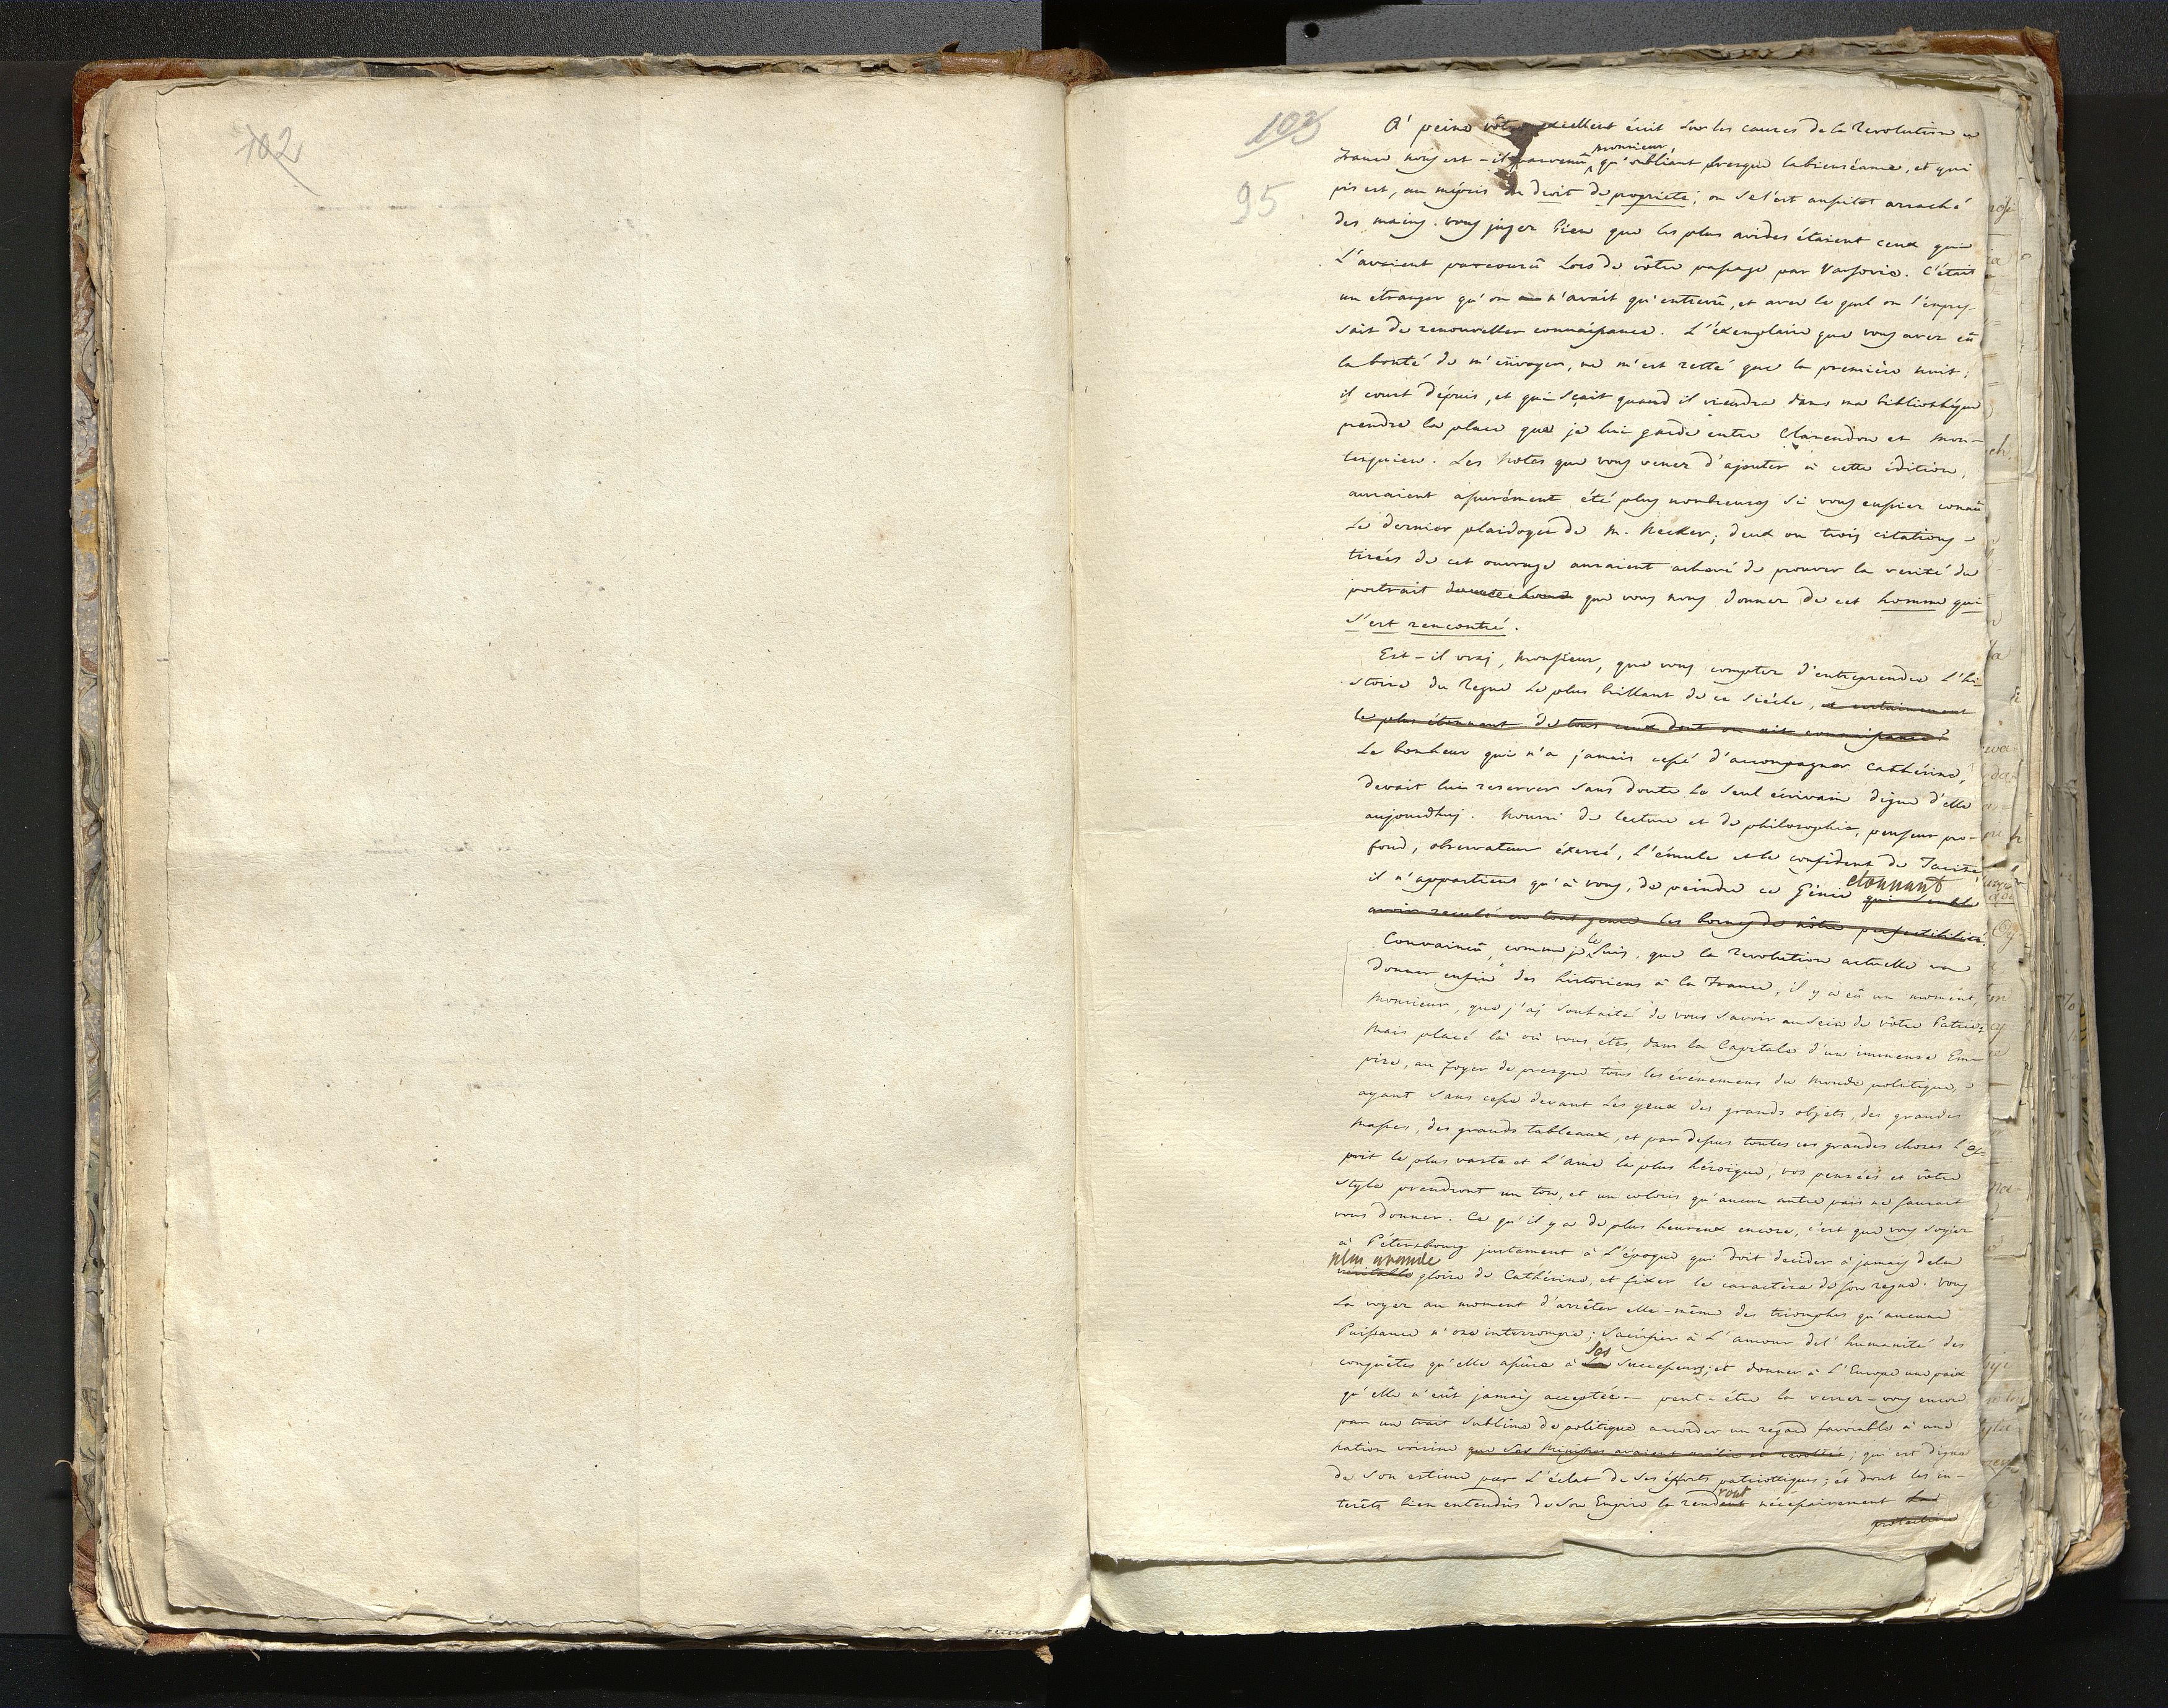 102
103
95
A' peine vôtre excellent écrit sur les causes de la Revolution en
France nous est-il parvenû, monsieur, qu'oubliant presque la bienséance, et qui
pis est, au mépris du droit de propriété; on se l'est aussitot arraché
des mains. vous jugez bien que les plus avides étaient ceux qui
L'avaient parcourû Lors de vôtre passage par Varsovie. C'était
un étranger qu'on n'avait qu'entrevû, et avec le quel on s'empres-
sait de renouveller connaissance. L'éxemplaire que vous avez eû
la bonté de m'envoyer, ne m'est resté que la première nuit;
il court dépuis, et qui sçait quand il viendra dans ma bibliothéque
prendre la place que je lui garde entre Clarendon et Mon-
tesquieu. Les Notes que vous venez d'ajouter à cette édition,
auraient assurément été plus nombreuses si vous eussiez connû
Le dernier plaidoyer de M. Necker; deux ou trois citations
tirées de cet ouvrage auraient achevé de prouver la verité du
portrait que vous nous donnez de cet homme qui
s'est rencontré.
Est-il vrai, Monsieur, que vous comptez d'entreprendre L'hi-
stoire du Regne Le plus brillant de ce Siécle, et certainement
le plus étonnant de tous ceux dont on ait connaissance?
Le bonheur qui n'a jamais cessé d'accompagner Cathérine,
devait lui reserver sans doute Le seul écrivain digne d'elle
aujourdhuj. Nourri de lecture et de philosophie, penseur pro-
fond, observateur éxercé, L'émule et le confident de Tacite,
il n'appartient qu'à vous, de peindre ce Génie etonnant qui semble
avoir reculé en tout genre les bornes de nôtre perfectibilité.
Convaincû, comme je le suis, que la Revolution actuelle va
donner enfin des historiens à la France, il y a eû un moment,
Monsieur, que j'aj souhaité de vous savoir au sein de vôtre Patrie;
Mais placé là où vous etes, dans la Capitale d'un immense Em-
pire, au foyer de presque tous les événemens du Monde politique,
ayant sans cesse devant Les yeux des grands objets, des grandes
Masses, des grands tableaux, et par dessus toutes ces grandes choses L'es-
prit le plus vaste et L'ame la plus héroique, vos pensées et vôtre
style prendront un ton, et un coloris qu'aucun autre païs ne saurait
vous donner. Ce qu'il y a de plus heureux encore, c'est que vous soyez
à Pétersbourg justement à L'époque qui doit decider à jamais de la
plus grande
veritable gloire de Cathérine, et fixer le caractère de son regne. Vous
La voyez au moment d'arrêter elle-même des triomphes qu'aucune
Puissance n'ose interrompre; sacrifier à L'amour de l'humanité des
conquêtes qu'elle assûre à ses successeurs; et donner à L'Europe une paix
qu'elle n'eût jamais acceptée - peut-être la verrez-vous encore
par un trait sublime de politique accorder un regard favorable à une
Nation voisine que ses Ministres avaient avilie et revoltée; qui est digne
de son estime par L'éclat de ses éfforts patriottiques; et dont les in-
terêts bien entendûs de son Empire la rendront nécessairement La
protectrice